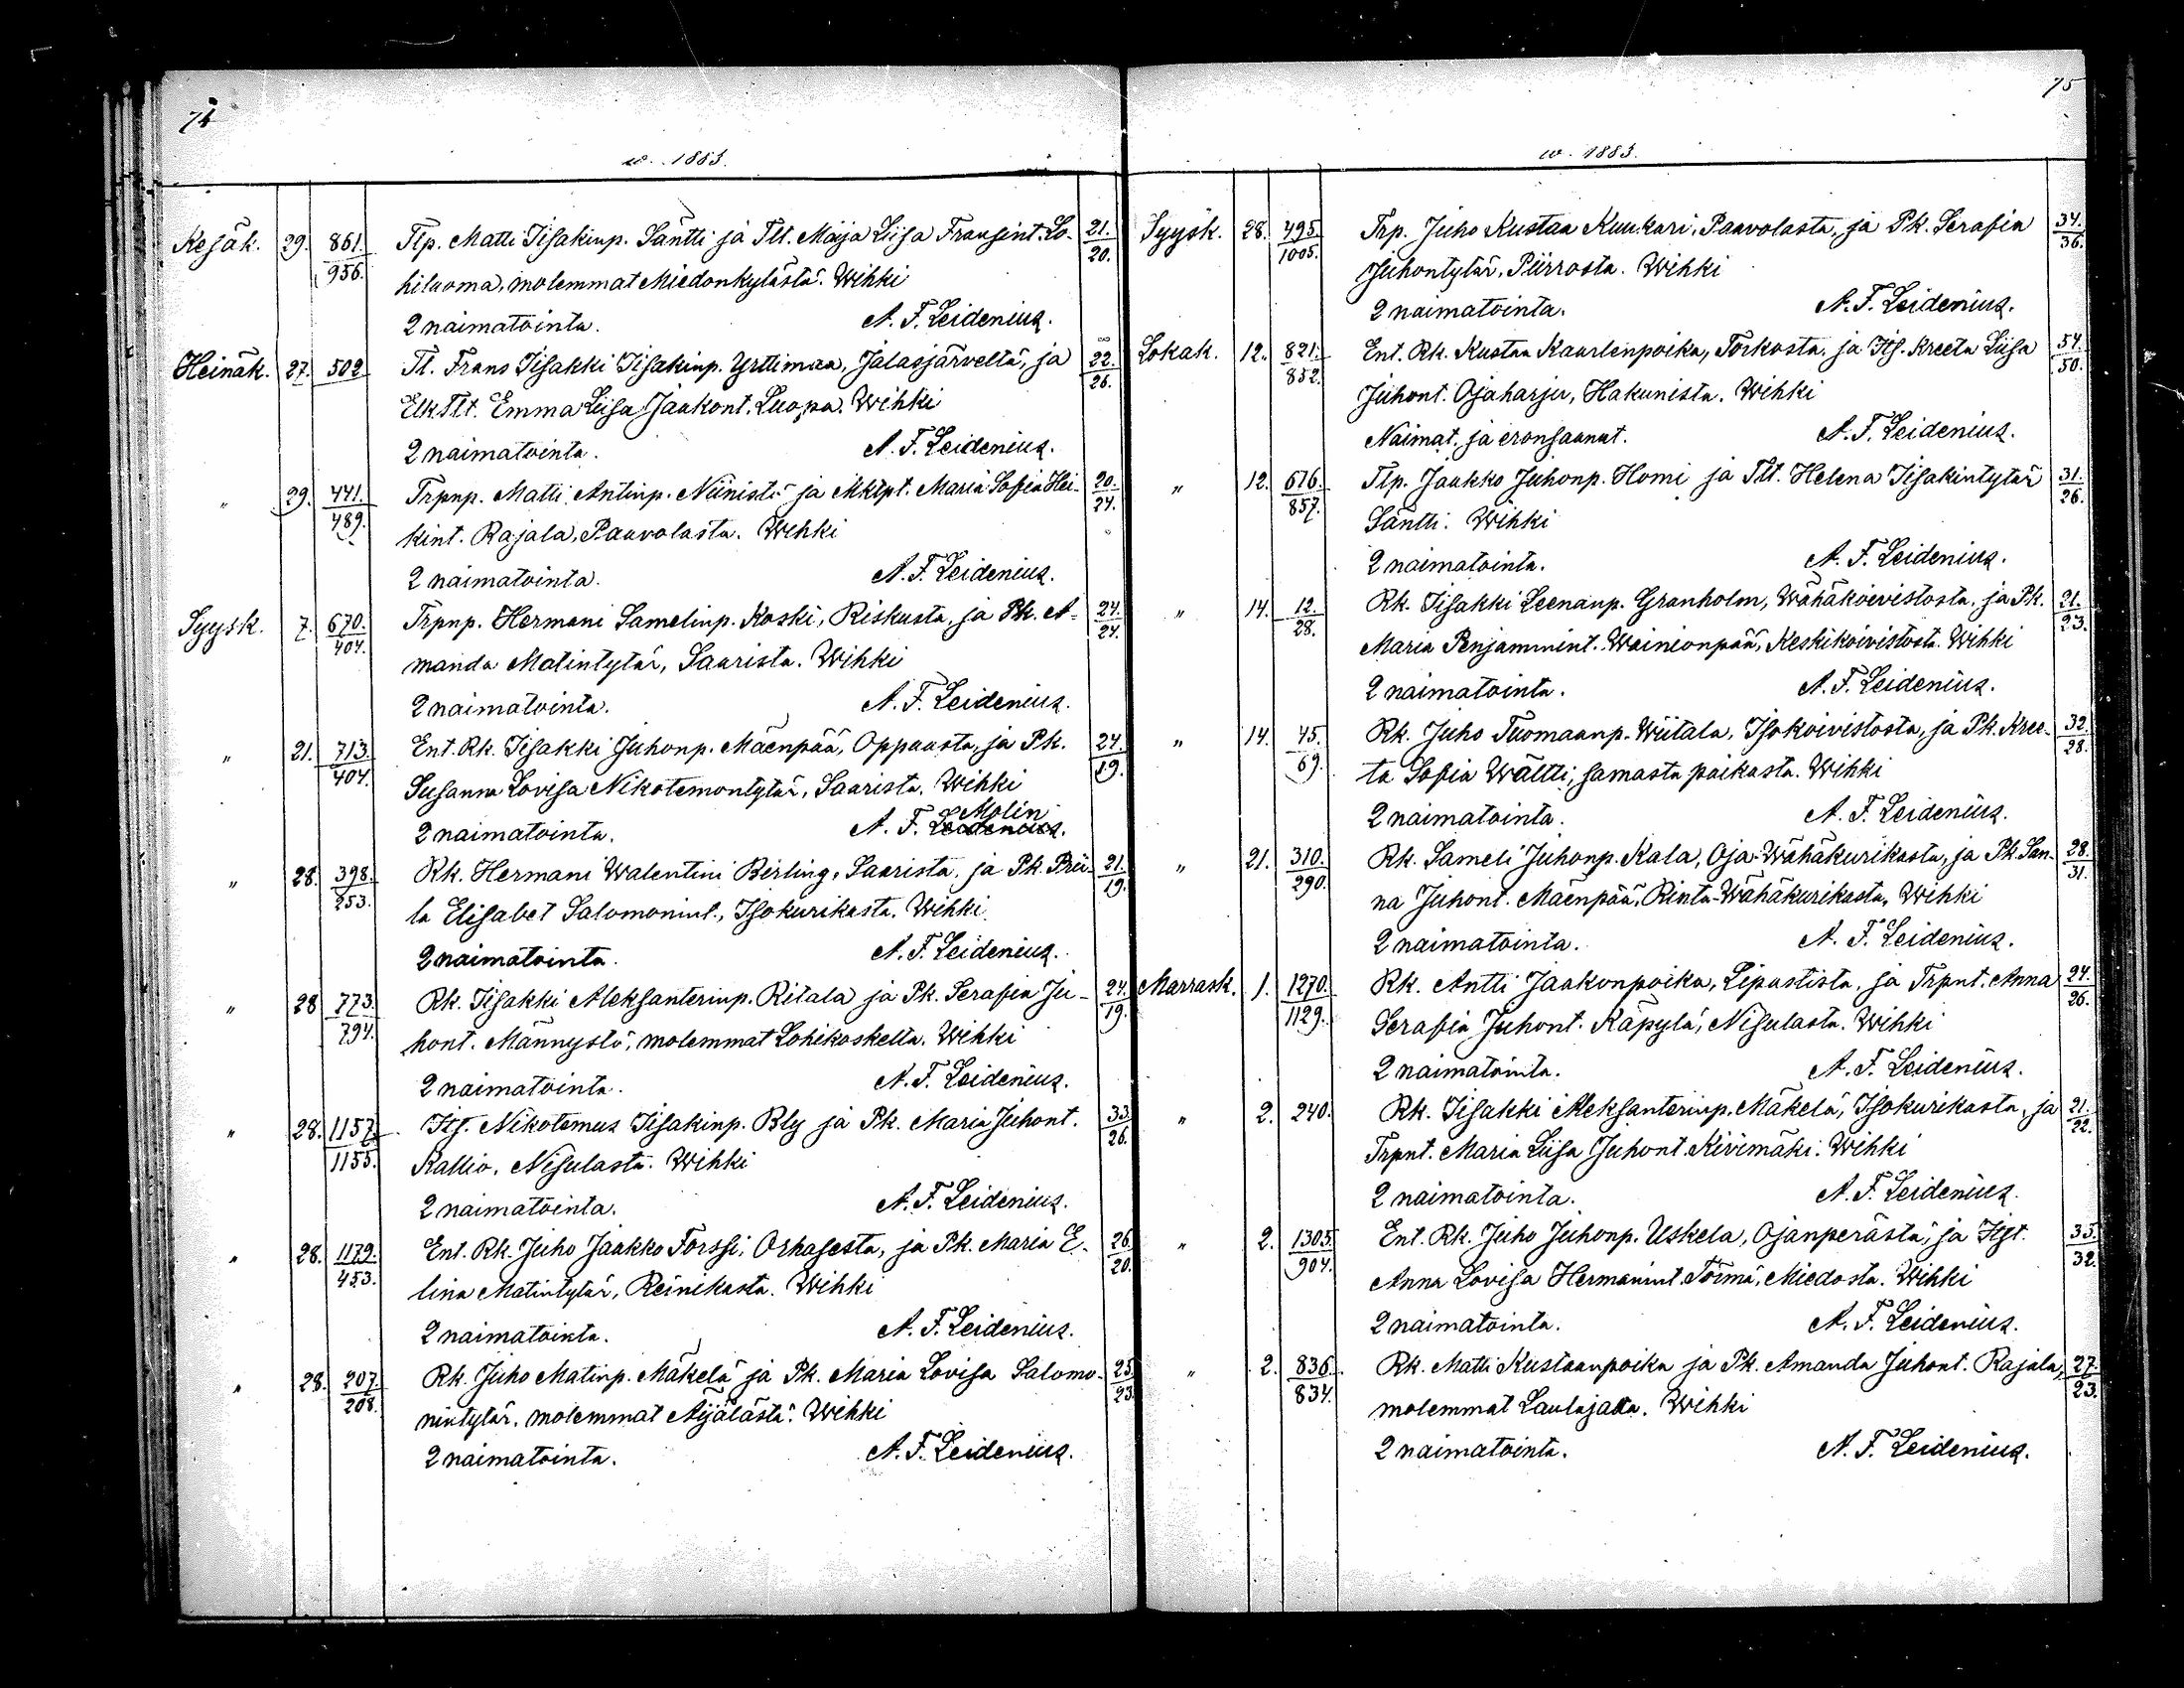 74
w. 1883.
Kesäk. 29. 861. Tlp. Matti Iisakinp. Säntti ja Tlt. Maija Liisa Fransint. Lo- 21.
956. hiluoma, molemmat Miedonkylästä. Wihki 20.
2 naimatointa. A. F. Leidenius.
Heinäk. 27. 502 Tl. Frans Iisakki Iisakinp. Yrttimaa, Jalasjärveltä, ja 22.
Elk Tlt. Emma Liisa Jaakont. Luopa. Wihki 26.
2 naimatointa. A. F. Leidenius.
" 29. 441. Trpnp. Matti Antinp. Niinistö ja Mktpt. Maria Sofia Hei- 20.
489. kint. Rajala, Paavolasta. Wihki 24.
2 naimatointa. A. F. Leidenius.
Syysk. 7. 670. Trpnp. Hermani Samelinp. Koski, Riskusta, ja Pk. A- 24.
404. manda Matintytär, Saarista. Wihki 24.
2 naimatointa. A. F. Leidenius.
" 21. 713. Ent. Rk. Iisakki Juhonp. Mäenpää, Oppaasta, ja Pk. 24.
404. Susanna Lovisa Nikotemontytär, Saarista. Wihki 19.
Molin
2 naimatointa. A. F. Leidenius.
" 28. 398. Rk. Hermani Walentini Berling, Saarista, ja Pk. Prii- 21.
253. la Elisabet Salomonint., Isokurikasta. Wihki 19.
2 naimatointa. A. F. Leidenius.
" 28 773. Rk. Iisakki Aleksanterinp. Ritala ja Pk. Serafia Ju- 24.
794. hont. Männystö, molemmat Lohikoskelta. Wihki 19.
2 naimatointa. A. F. Leidenius.
" 28. 1157. Itj. Nikotemus Iisakinp. Bly ja Pk. Maria Juhont. 33.
1155. Kallio, Nisulasta. Wihki 26.
2 naimatointa. A. F. Leidenius.
" 28. 1179. Ent. Rk. Juho Jaakko Forssi, Orhasesta, ja Pk. Maria E- 26.
453. lina Matintytär, Reinikasta. Wihki 20.
2 naimatointa. A. F. Leidenius.
" 28. 207. Rk. Juho Matinp. Mäkelä ja Pk. Maria Lovisa Salomo- 25.
208. nintytär, molemmat Äijälästä. Wihki 23
2 naimatointa. A. F. Leidenius.
75
w. 1883.
Syysk. 28. 495. Trp. Juho Kustaa Kuukari, Paavolasta, ja Pk. Serafia 34.
1005. Juhontytär, Piirrosta. Wihki 36.
2 naimatointa. A. F. Leidenius.
Lokak. 12. 821. Ent. Rk. Kustaa Kaarlenpoika, Torkosta, ja Itj. Kreeta Liisa 54.
852. Juhont. Ojaharju, Hakunista. Wihki 50.
Naimat. ja eronsaanut. A. F. Leidenius.
" 12. 676. Tlp. Jaakko Juhonp. Homi ja Tlt. Helena Iisakintytär 31.
857. Säntti. Wihki 26.
2 naimatointa. A. F. Leidenius.
" 14. 12. Rk. Iisakki Leenanp. Granholm, Wähäkoivistosta, ja Pk. 21.
28. Maria Penjammint. Wainionpää, Keskikoivistosta. Wihki 23.
2 naimatointa. A. F. Leidenius.
" 14. 45. Rk. Juho Tuomaanp. Wiitala, Isokoivistosta, ja Pk. Kree- 32.
69. ta Sofia Wältti, samasta paikasta. Wihki 28.
2 naimatointa. A. F. Leidenius.
" 21. 310. Rk. Sameli Juhonp. Kala, Oja-Wähäkurikasta, ja Pk. San- 28.
290. na Juhont. Mäenpää, Rinta-Wähäkurikasta, Wihki 31.
2 naimatointa. A. F. Leidenius.
Marrask. 1. 1270. Rk. Antti Jaakonpoika, Lipastista, ja Trpnt. Anna 24.
1129. Serafia Juhont. Käpylä, Nisulasta. Wihki 26.
2 naimatointa. A. F. Leidenius.
" 2. 240. Rk. Iisakki Aleksanterinp. Mäkelä, Isokurikasta, ja 21.
Trpnt. Maria Liisa Juhont. Kivimäki. Wihki 22.
2 naimatointa. A. F. Leidenius.
" 2. 1305. Ent. Rk. Juho Juhonp. Uskela, Ojanperästä, ja Itjt. 33.
904. Anna Lovisa Hermanint. Törmä, Miedosta. Wihki 32.
2 naimatointa. A. F. Leidenius.
" 2. 836. Rk. Matti Kustaanpoika ja Pk. Amanda Juhont. Rajala, 27.
834. molemmat Laulajalta. Wihki 23.
2 naimatointa. A. F. Leidenius.